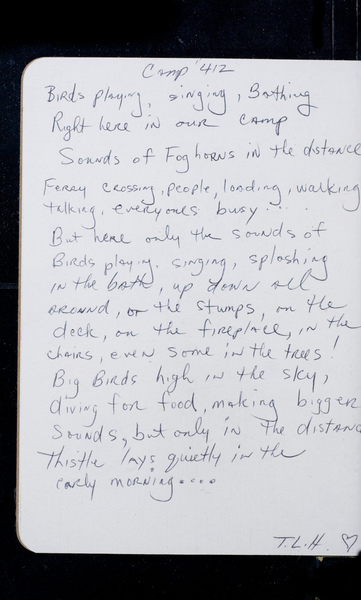 Camp '412
Birds playing, singing, Bathing
Right here in our camp
Sounds of Foghorns in the distance
Ferry crossing, people, loading, walking
talking, everyones busy....
But here only the sounds of
Birds playing, singing, splashing
in the bath, up down all
around, on the stumps, on the
deck, on the fireplace, in the
chairs, even some in the trees!
Big Birds high in the sky,
diving for food, making bigger
sounds, but only in the distanc
Thistle lays quietly in the
early morning....
T.L.H. ♡